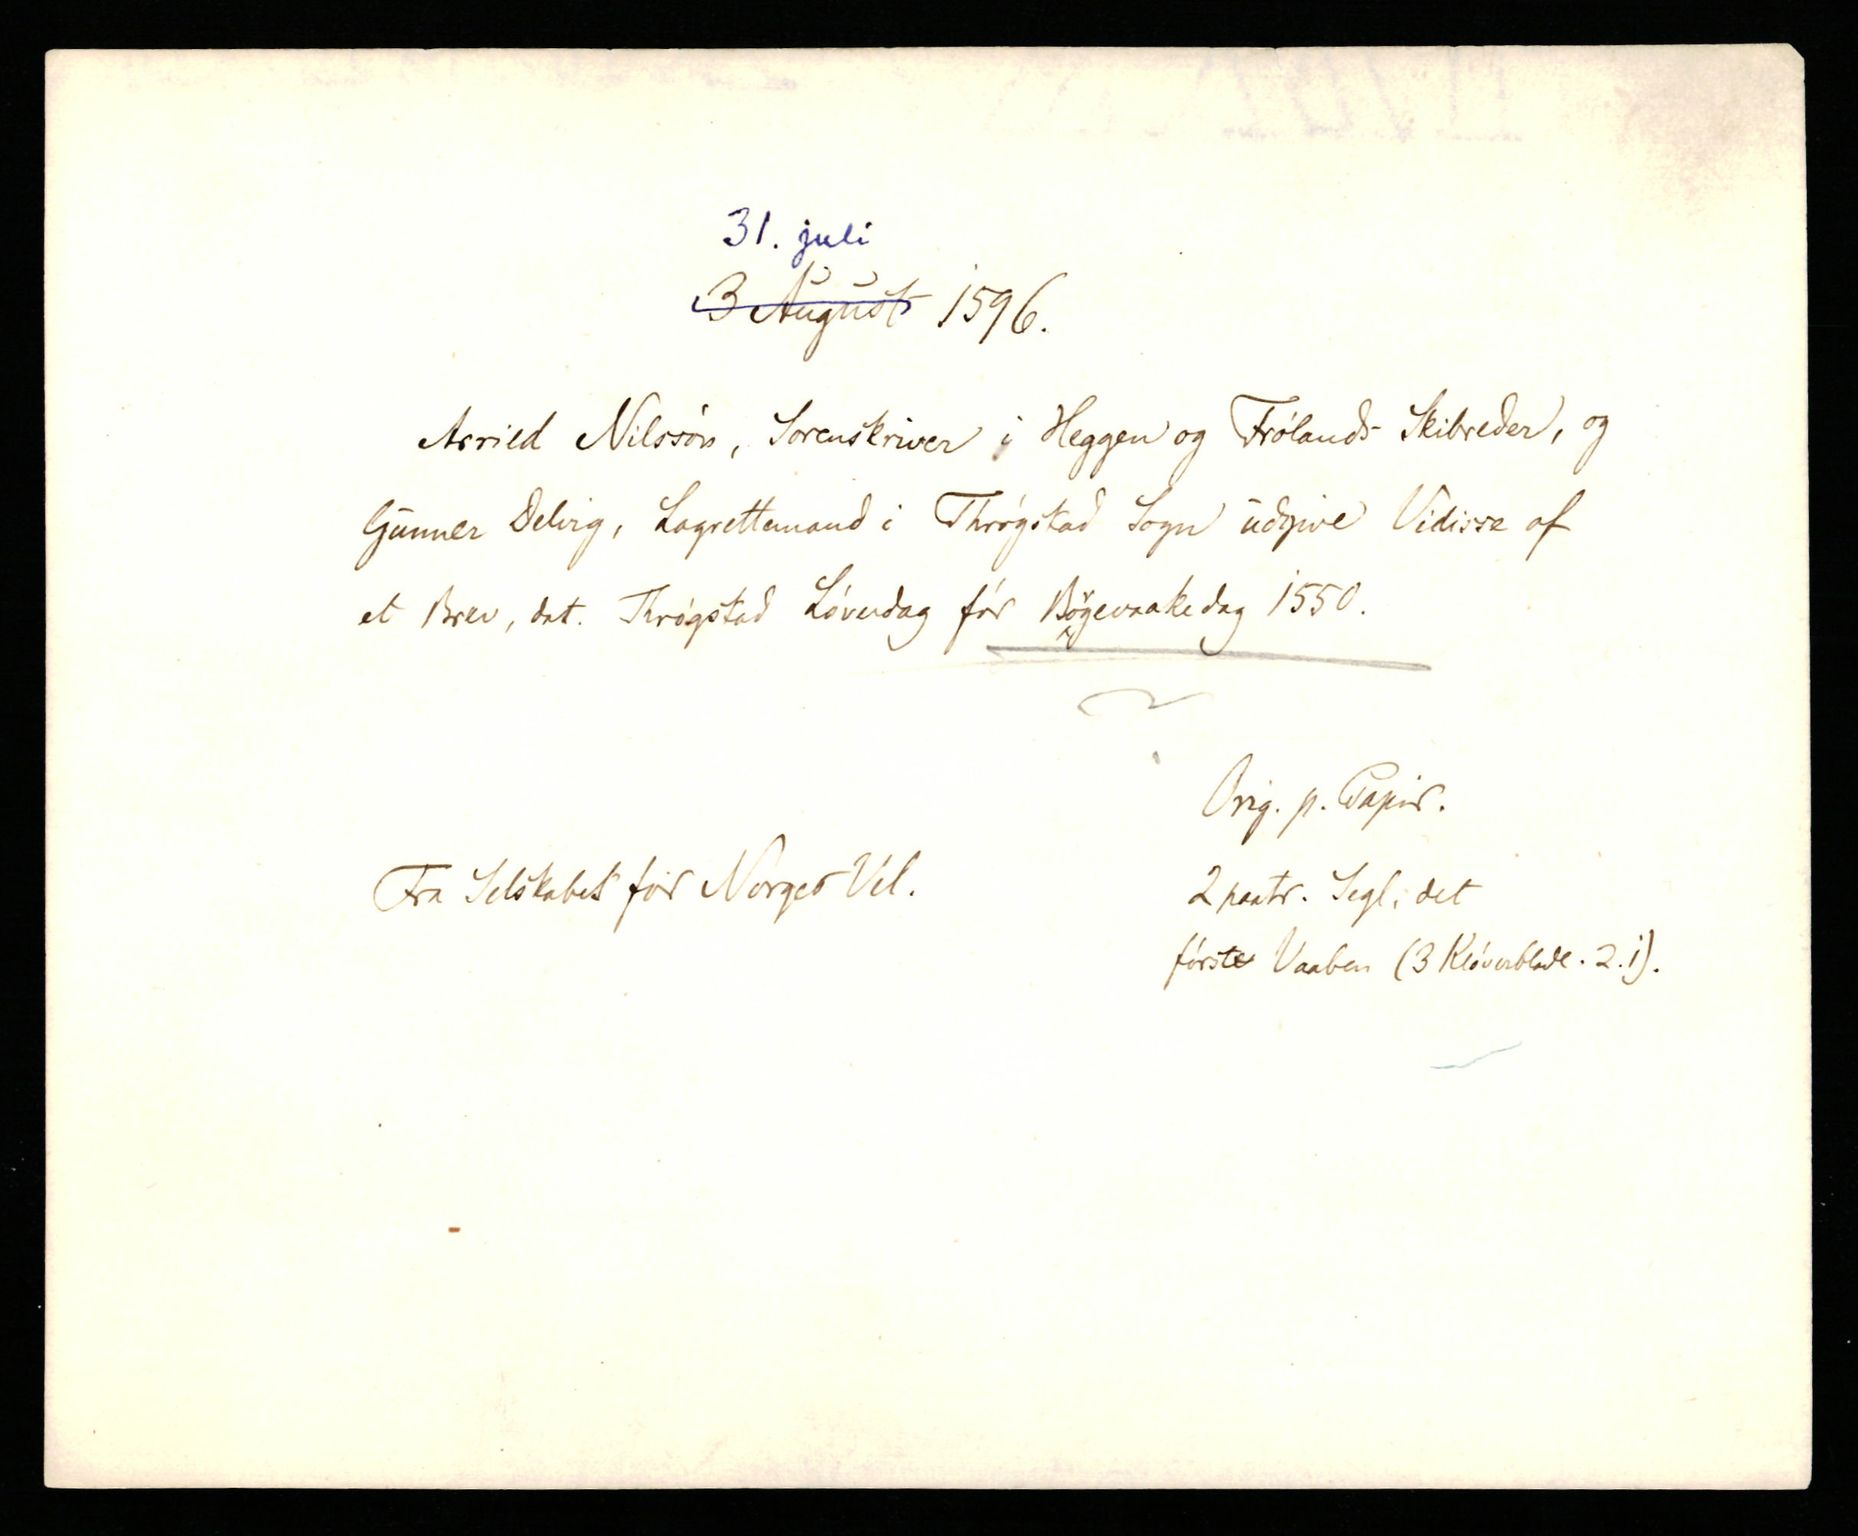 31. juli
3 August 1596.
Arrild Nilssøn, Sorenskriver i Heggen og Frølands Skibreder, og
Gunner Delvig, Lagrettemand i Thrøgstad Sogn udgive Vidisse af
et Brev, dat. Thrøgstad Løverdag før Bøgevaakedag 1550.
Orig. p. Papir.
Fra Selskabet for Norges Vel.
2 paatr. Segl; det
første Vaaben (3 Kløverblade. 2. 1).